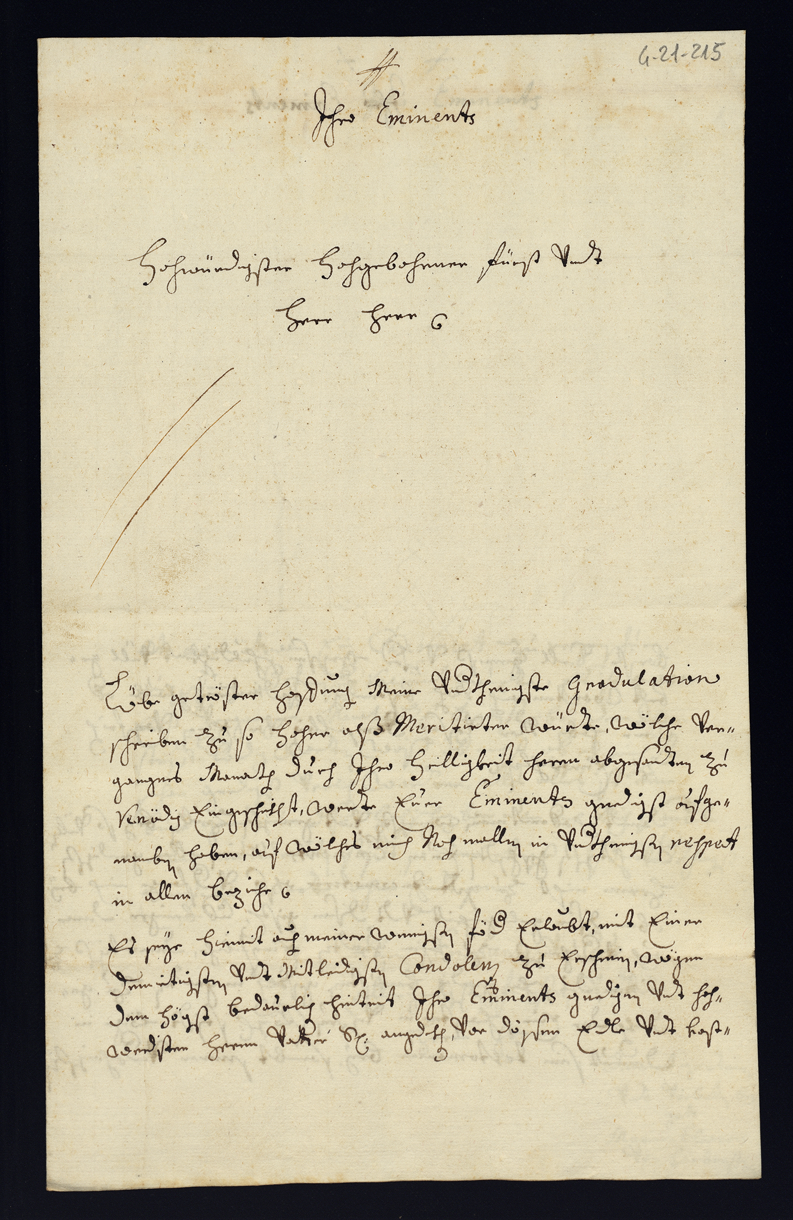 4-21-215
Jhro Eminents
Hohwürdigster Hohgebohrner fürst Vndt
Herr Herr
Löbe getröster Hoffnung Meine Vndthenigste Gradulation
schreiben zu so Hoher alß Meritierter würde, wölche Ver-
gangnes Monath durch Jhro Heilligkeit herrn abgesandten zu
Venödig Eingeschickht, werde Eüer Eminents gnedigst aufge-
nomben haben, auf wölches mich Noh mallen in Vndthenigsten respect
in allen beziehe
Es seye hiemit auß meiner wenigsten föd Erlaubt, mit Einer
demietigsten Vndt Mitleidigsten Condolenz zu Erscheinen, wögen
dem högst bedaurlich hintrit Jhro Eminents gnedigen Vndt hoh-
werdisten herrn Vatter Sx: angedth, Vor dössen Edle Vndt kost-